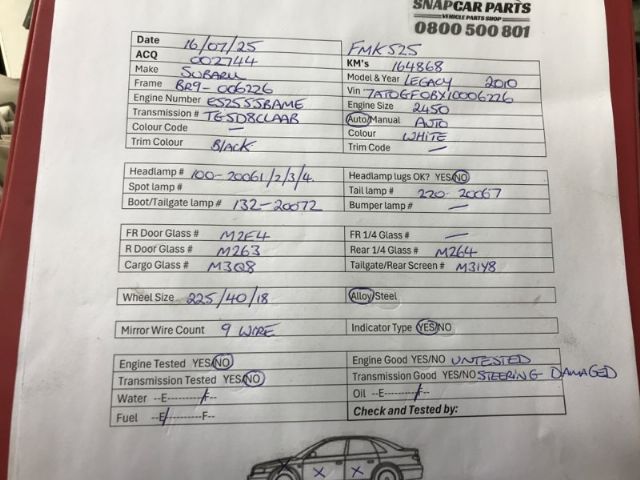 SNAPCAR PARTS
VEHICLE PARTS SHOP
0800 500 801
Date 16/07/25 FMK525
ACQ 002744 KM's 164868
Make SUBARU Model & Year LEGACY 2010
Frame BR9-006226 Vin 7AT0GF0BX10006226
Engine Number EJ2555BAME Engine Size 2450
Transmission # TG5D8CLAAB Auto/Manual AUTO
Colour Code — Colour WHITE
Trim Colour BLACK Trim Code —
Headlamp # 100-20061/2/3/4. Headlamp lugs OK? YES/NO
Spot lamp # Tail lamp # 220-20067
Boot/Tailgate lamp # 132-20072 Bumper lamp # —
FR Door Glass # M2E4 FR 1/4 Glass # —
R Door Glass # M263 Rear 1/4 Glass # M264
Cargo Glass # M3Q8 Tailgate/Rear Screen # M3IY8
Wheel Size 225/40/18 Alloy/Steel
Mirror Wire Count 9 WIRE Indicator Type YES/NO
Engine Tested YES/NO Engine Good YES/NO UNTESTED
Transmission Tested YES/NO Transmission Good YES/NO STEERING DAMAGED
Water --E----------F-- Oil --E----------F--
Fuel --E----------F-- Check and Tested by:
X X X